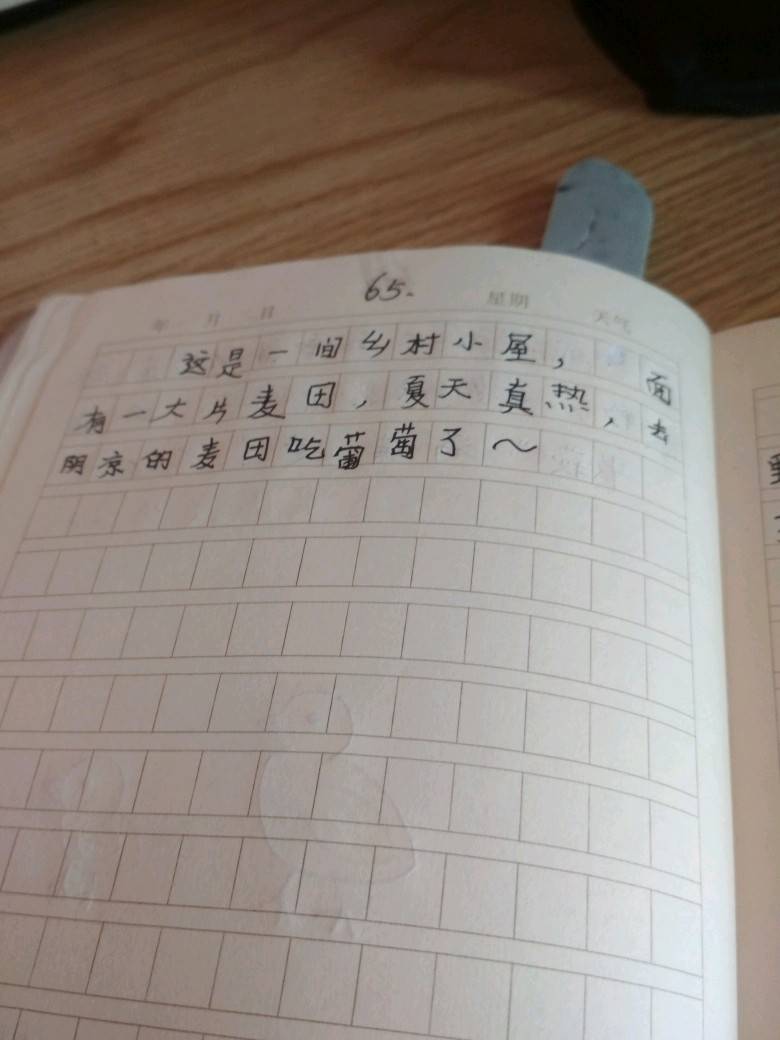 65.
年 月 日 星期 天气
这是一间乡村小屋, 面
有一大片麦田,夏天真热,去
阴凉的麦田吃葡萄了～